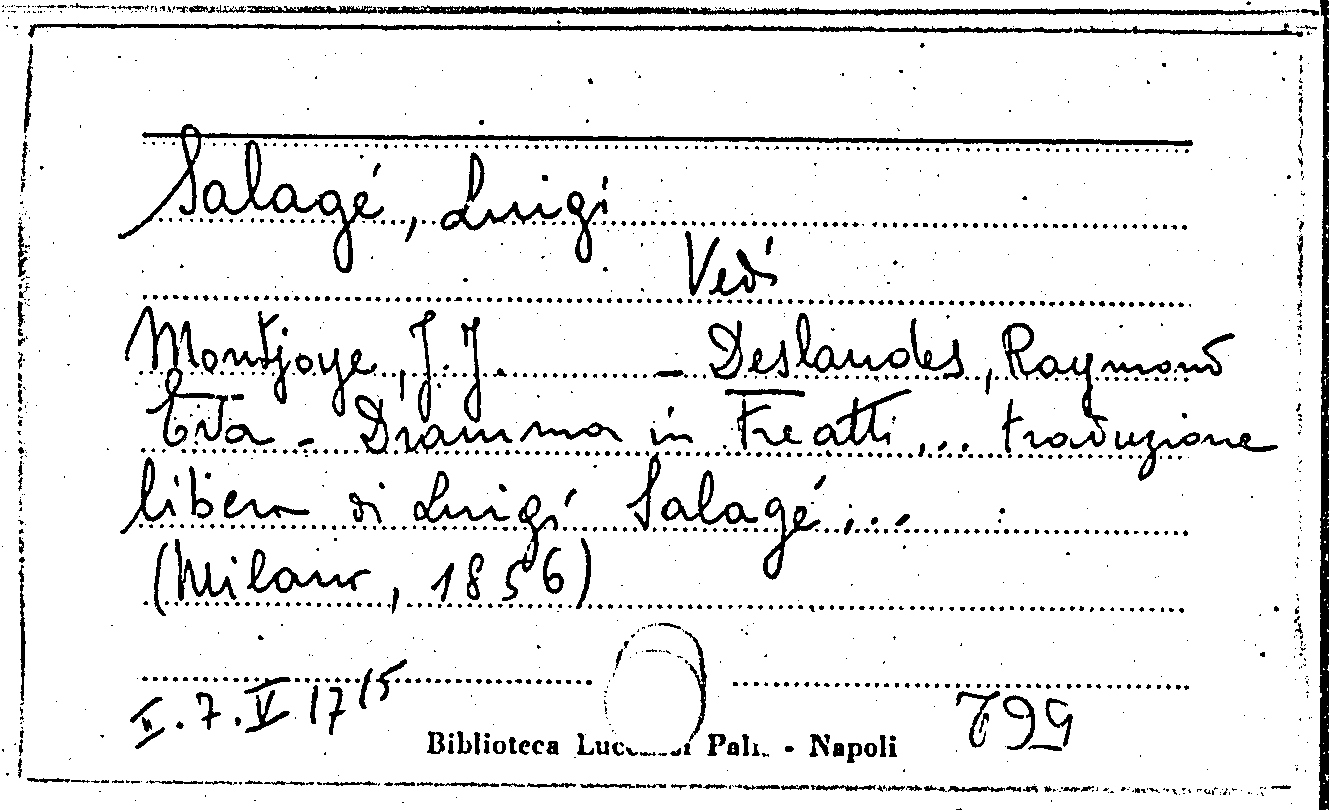 Salagé, Luigi
Vedi
Montjoye, J. J. - Deslandes, Raymond
Eva - Dramma in tre atti, ... traduzione
libera di Luigi Salagé, ...
(Milano, 1856)
II. 7. IV 17 15
Biblioteca - Napoli